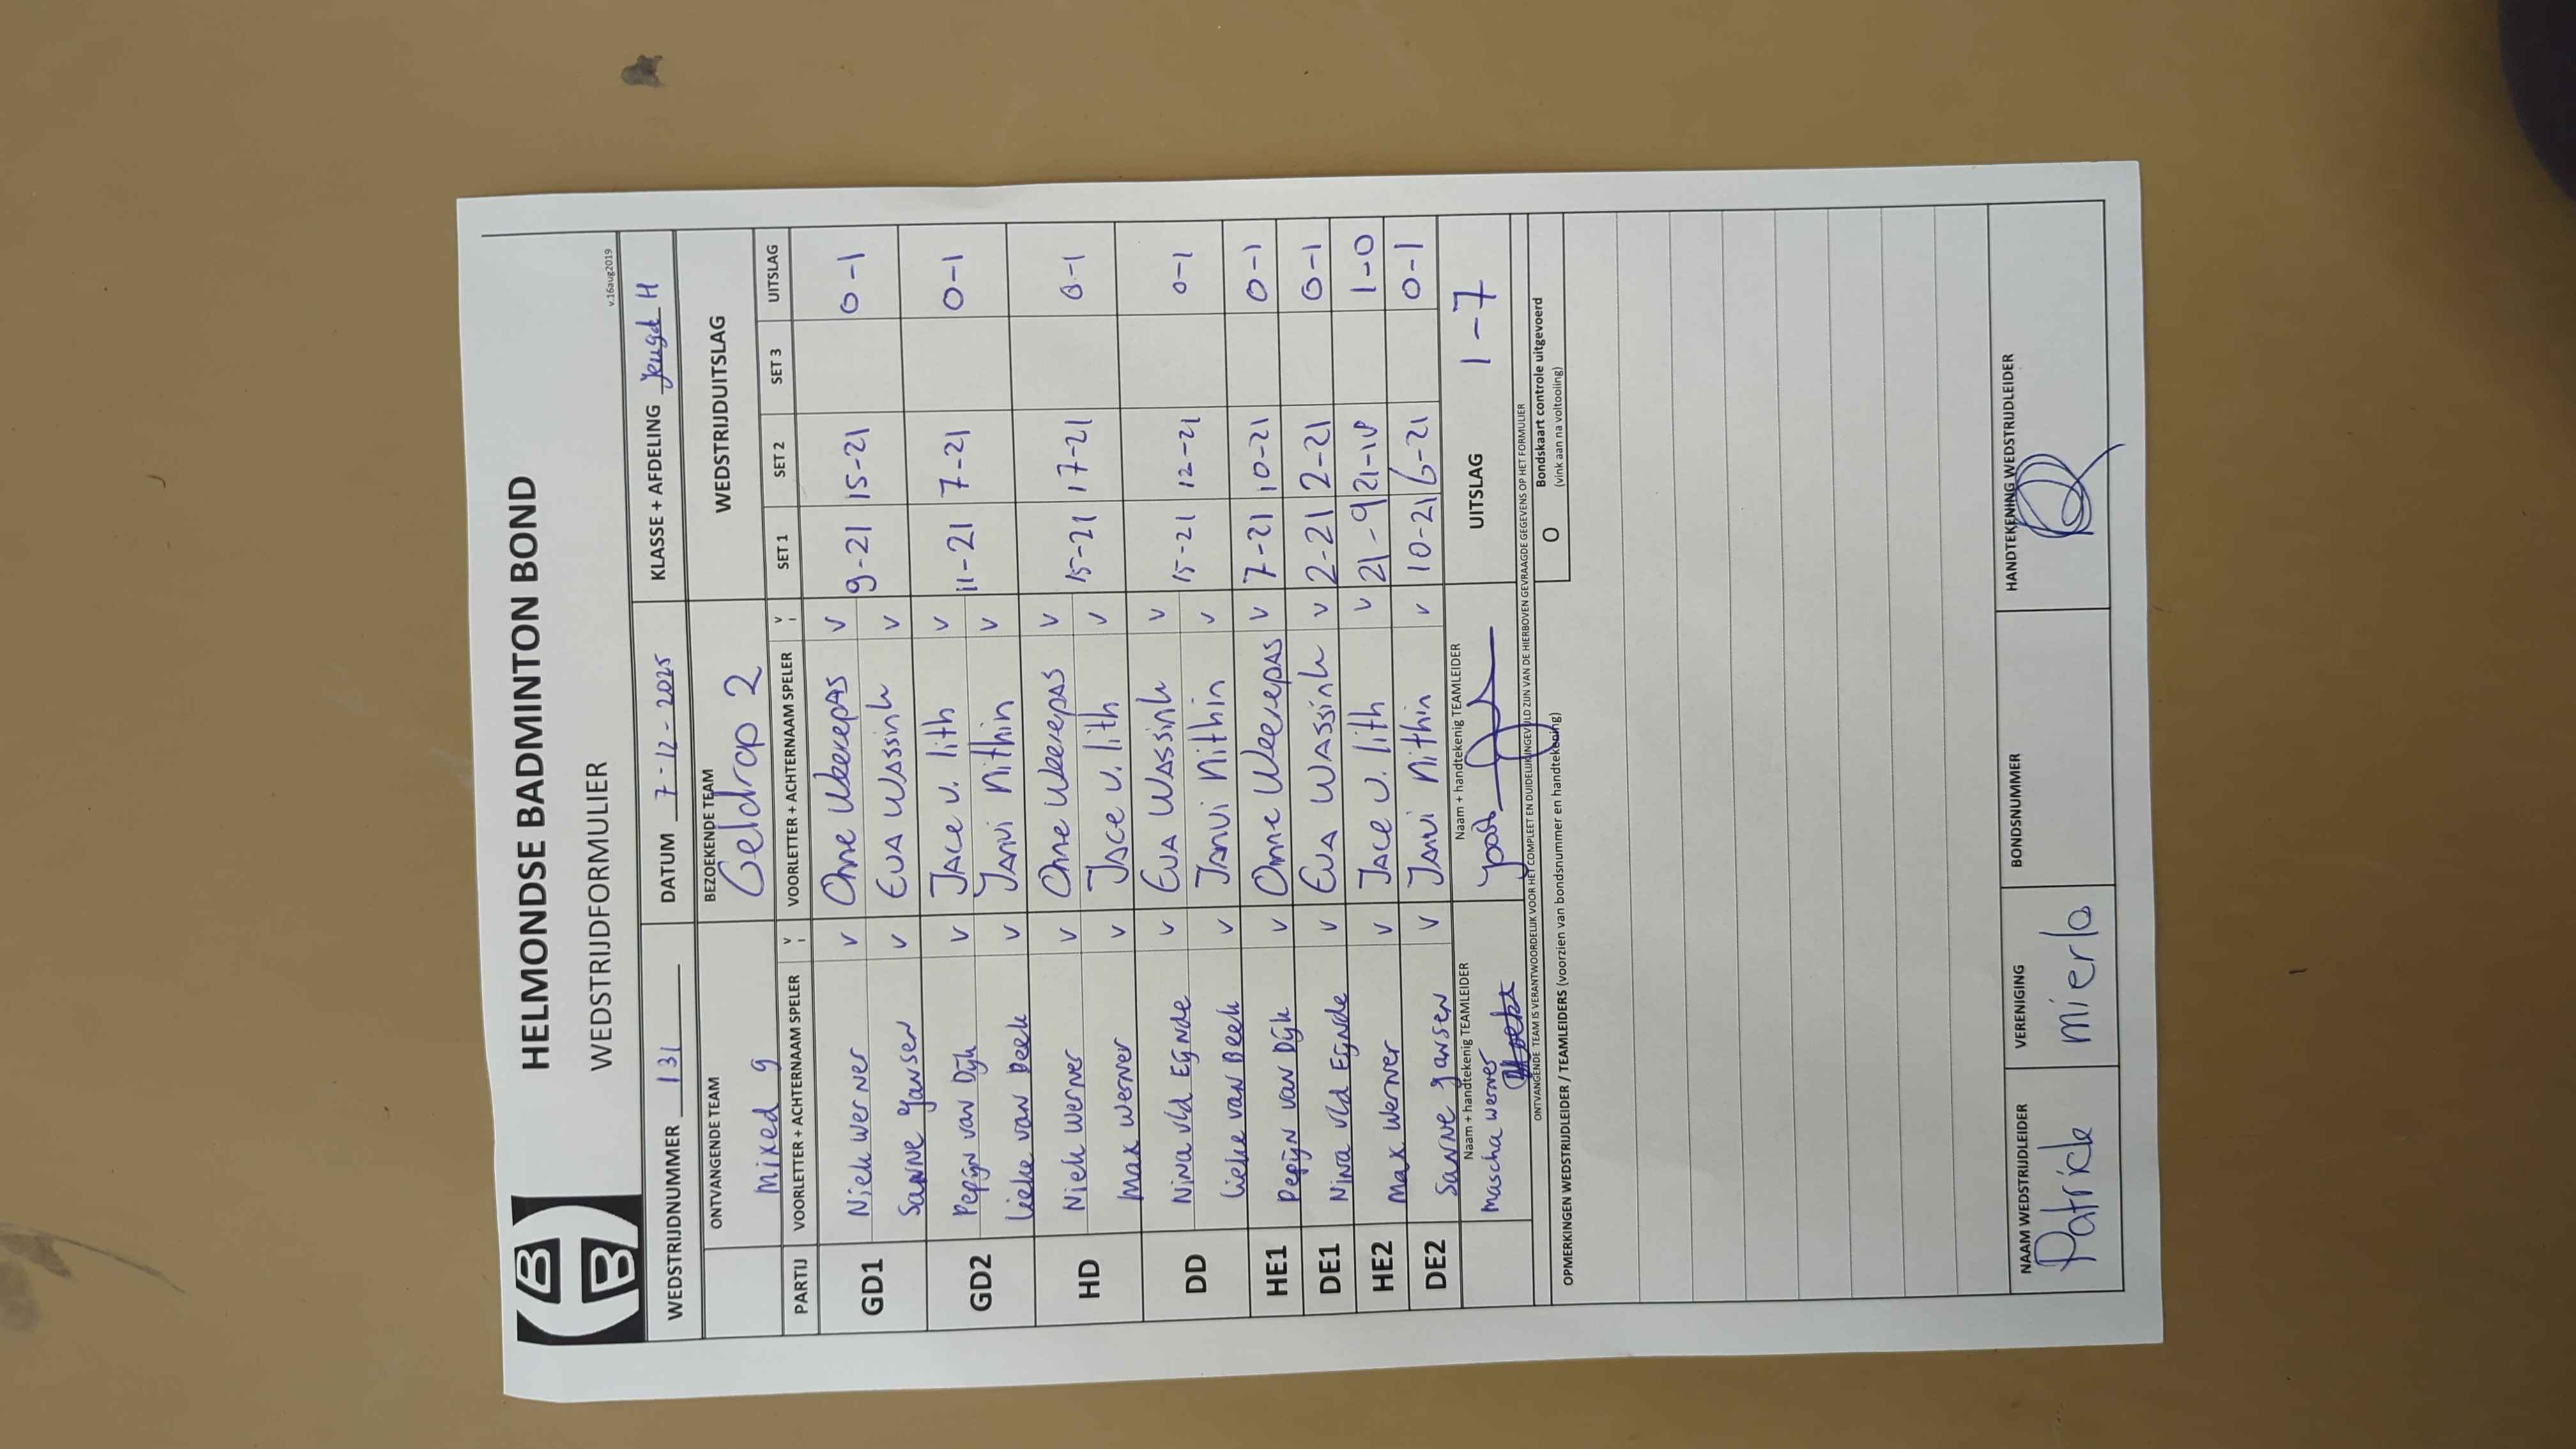 HELMONDSE BADMINTON BOND
WEDSTRIJDFORMULIER
v.16aug2019
B
B
WEDSTRIJDNUMMER 131 DATUM 7-12-2025 KLASSE + AFDELING Jeugd H
ONTVANGENDE TEAM BEZOEKENDE TEAM WEDSTRIJDUITSLAG
Mixed 9 Geldrop 2
PARTIJ VOORLETTER + ACHTERNAAM SPELER V VOORLETTER + ACHTERNAAM SPELER V SET 1 SET 2 SET 3 UITSLAG
GD1 Niek Werner v Onne Weerepas v 9-21 15-21 0-1
Sanne Jansen v Eva Wassink v
GD2 Pepijn van Dijk v Jace v. lith v 11-21 7-21 0-1
Lieke van Beek v Janvi Nithin v
HD Niek Werner v Onne Weerepas v 15-21 17-21 0-1
Max Werner v Jace v. lith v
DD Nina v/d Eijnde v Eva Wassink v 15-21 12-21 0-1
Lieke van Beek v Janvi Nithin v
HE1 Pepijn van Dijk v Onne Weerepas v 7-21 10-21 0-1
DE1 Nina v/d Eijnde v Eva Wassink v 2-21 2-21 0-1
HE2 Max Werner v Jace v. lith v 21-9 21-18 1-0
DE2 Sanne Jansen v Janvi Nithin v 10-21 6-21 0-1
Naam + handtekenig TEAMLEIDER Naam + handtekenig TEAMLEIDER UITSLAG 1-7
Mascha Werner Joost
ONTVANGENDE TEAM IS VERANTWOORDELIJK VOOR HET COMPLEET EN DUIDELIJK INGEVULD ZIJN VAN DE HIERBOVEN GEVRAAGDE GEGEVENS OP HET FORMULIER
O Bondskaart controle uitgevoerd
(vink aan na voltooling)
OPMERKINGEN WEDSTRIJDLEIDER / TEAMLEIDERS (voorzien van bondsnummer en handtekening)
NAAM WEDSTRIJDLEIDER VERENIGING BONDSNUMMER HANDTEKENING WEDSTRIJDLEIDER
Patrick mierlo